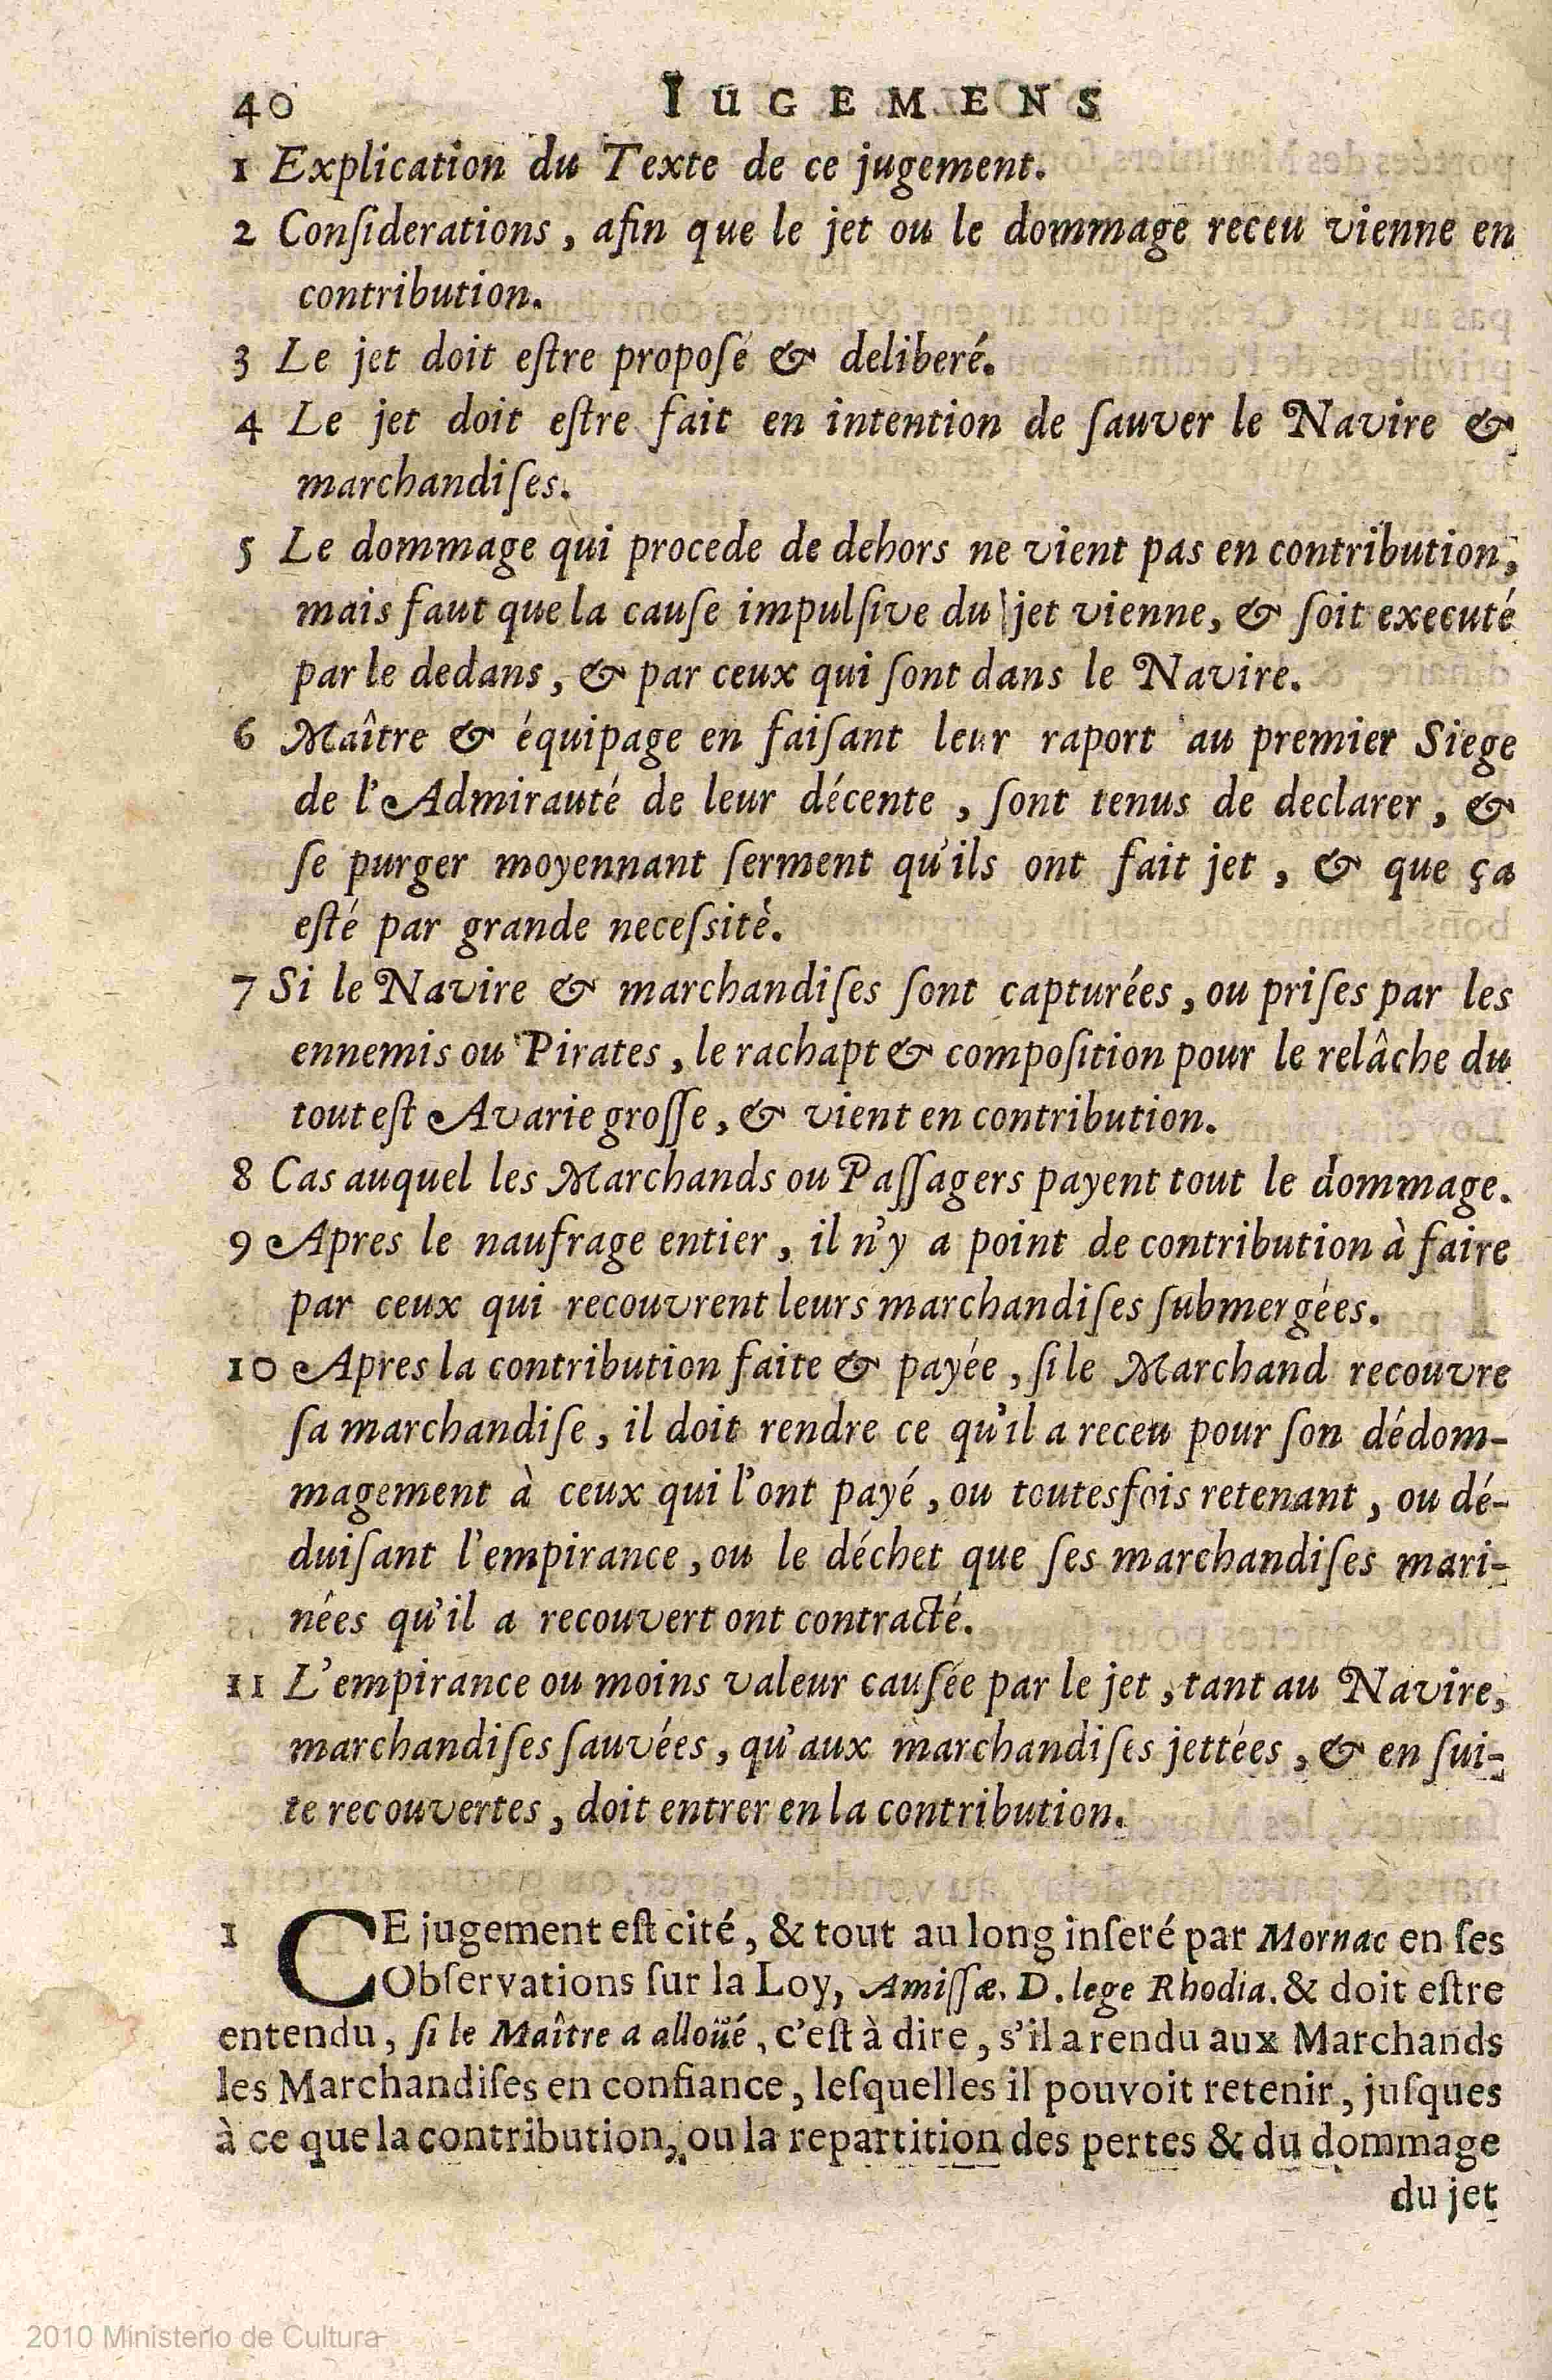 40 IUGEMENS
1 Explication du Texte de ce jugement.
2 Conſiderations, afin que le jet ou le dommage receu vienne en
contribution.
3 Le jet doit eſtre propoſé & deliberé.
4 Le jet doit eſtre fait en intention de ſauver le Navire &
marchandiſes.
5 Le dommage qui procede de dehors ne vient pas en contribution,
mais faut que la cauſe impulſive du jet vienne, & ſoit executé
par le dedans, & par ceux qui ſont dans le Navire.
6 Maître & équipage en faiſant leur raport au premier Siege
de l'Admirauté de leur décente, ſont tenus de declarer, &
ſe purger moyennant ſerment qu'ils ont fait jet, & que ça
eſté par grande neceſsitè.
7 Si le Navire & marchandiſes ſont capturées, ou priſes par les
ennemis ou Pirates, le rachapt & compoſition pour le relâche du
tout eſt Avarie groſſe, & vient en contribution.
8 Cas auquel les Marchands ou Paſſagers payent tout le dommage.
9 Apres le naufrage entier, il n'y a point de contribution à faire
par ceux qui recouvrent leurs marchandiſes ſubmergées.
10 Apres la contribution faite & payée, ſi le Marchand recouvre
ſa marchandiſe, il doit rendre ce qu'il a receu pour ſon dédom-
magement à ceux qui l'ont payé, ou toutesfois retenant, ou dé-
duiſant l'empirance, ou le déchet que ſes marchandiſes mari-
nées qu'il a recouvert ont contracté.
11 L'empirance ou moins valeur cauſée par le jet, tant au Navire,
marchandiſes ſauvées, qu'aux marchandiſes jettées, & en ſui-
te recouvertes, doit entrer en la contribution.
1 CE jugement eſt cité, & tout au long inſeré par Mornac en ſes
Obſervations ſur la Loy, Amiſſæ. D. lege Rhodia. & doit eſtre
entendu, ſi le Maître a alloüé, c'eſt à dire, s'il a rendu aux Marchands
les Marchandiſes en confiance, leſquelles il pouvoit retenir, juſques
à ce que la contribution, ou la repartition des pertes & du dommage
du jet
2010 Ministerio de Cultura